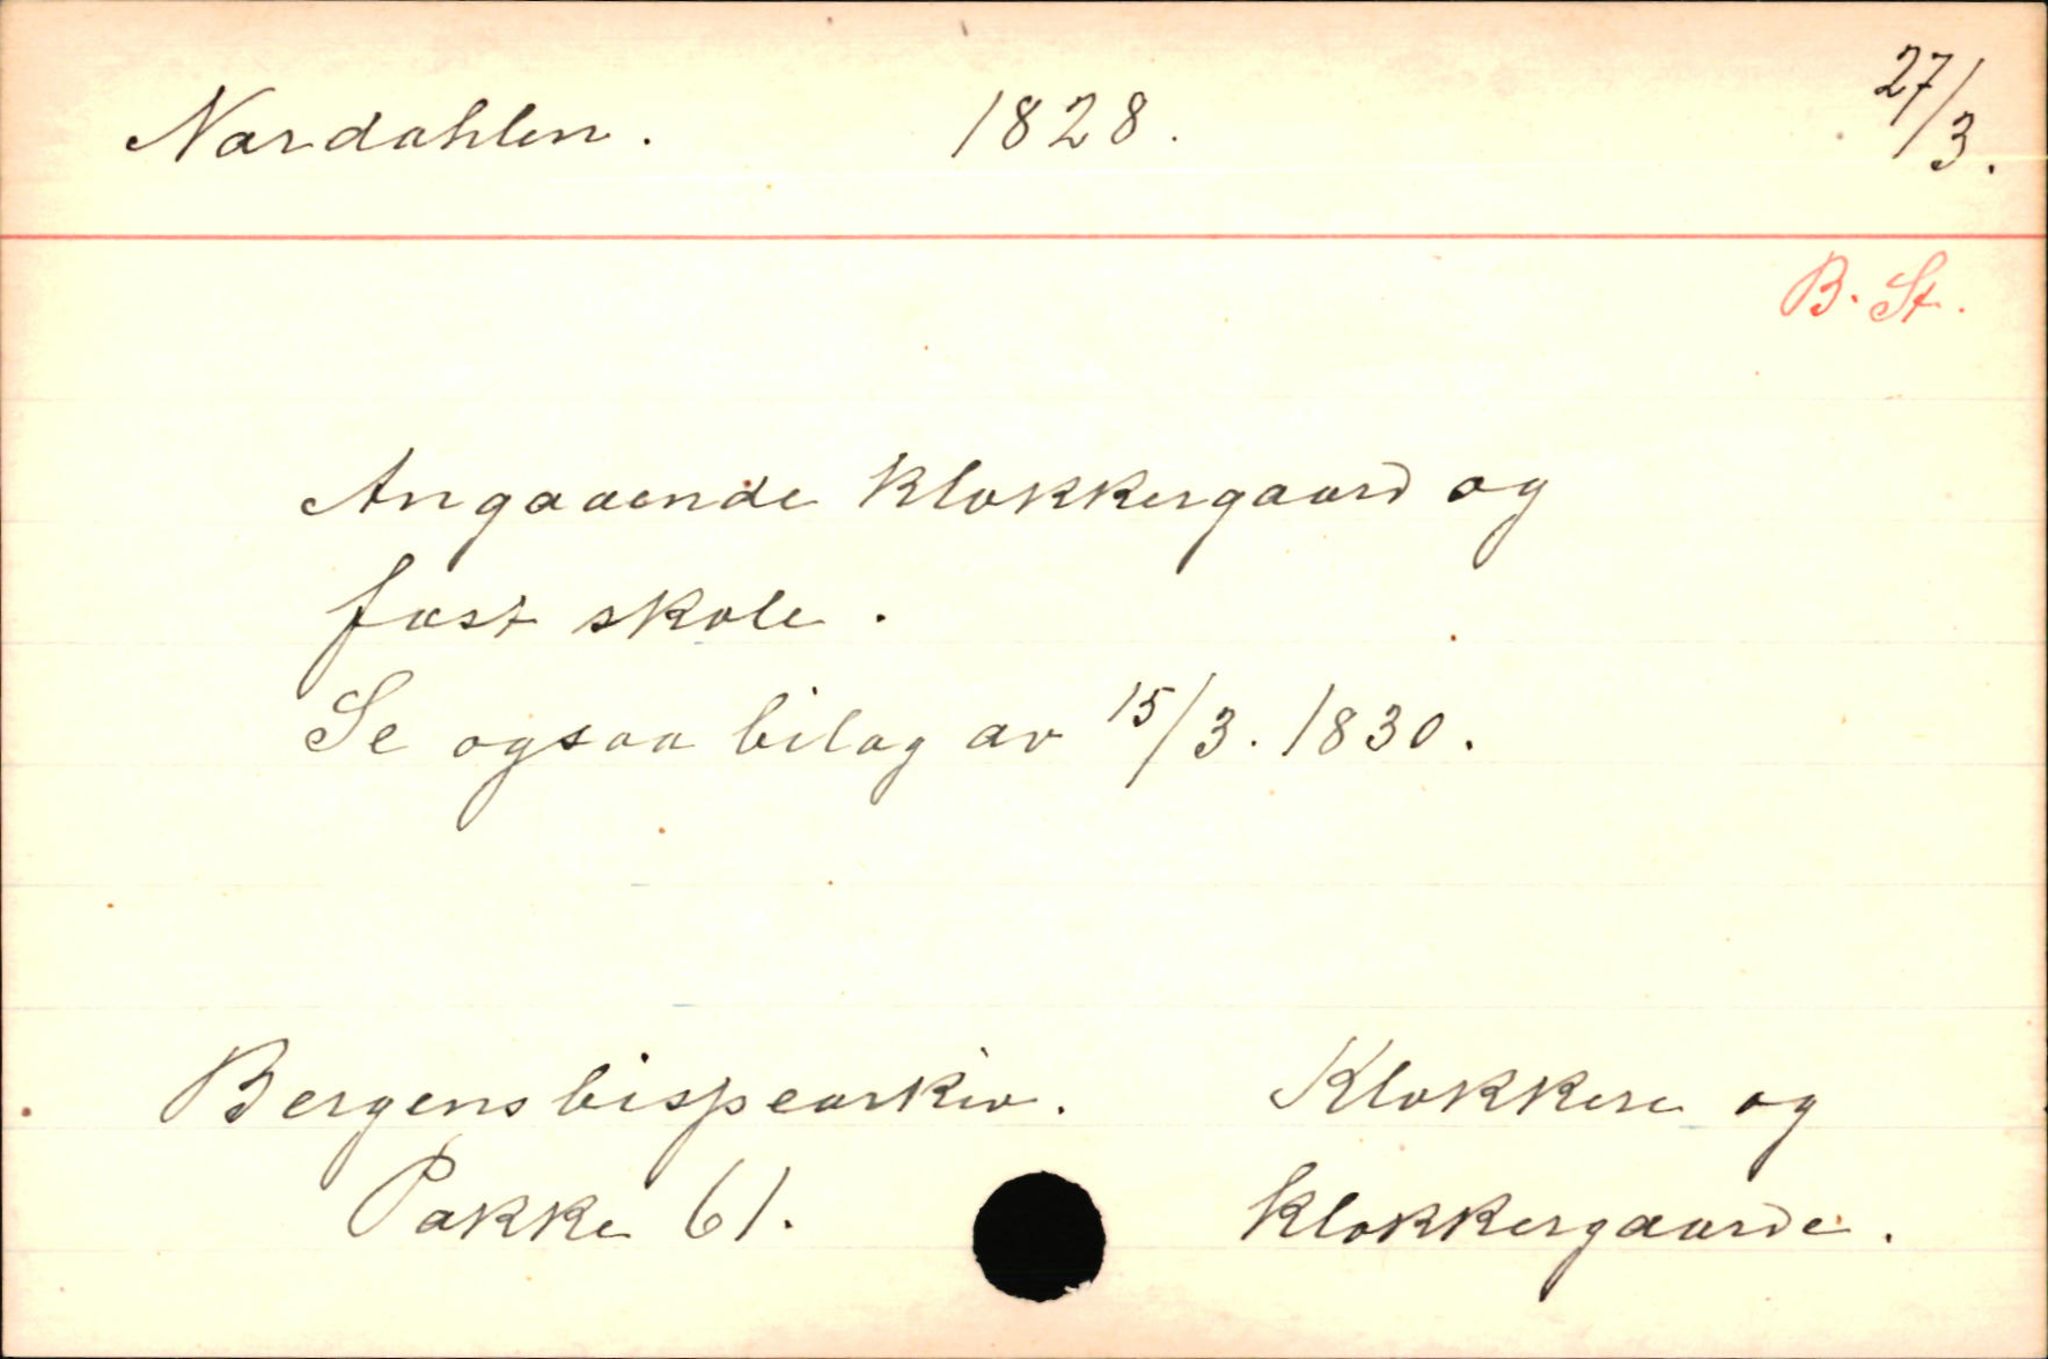 Nordahlen. 1828. 27/3.
B. St.
Angaaende klokkergaard og
fast skole.
Se ogsaa bilag av 15/3. 1830.
Bergens bispearkiv. Klokkere og
Pakke 61. klokkergaarde.